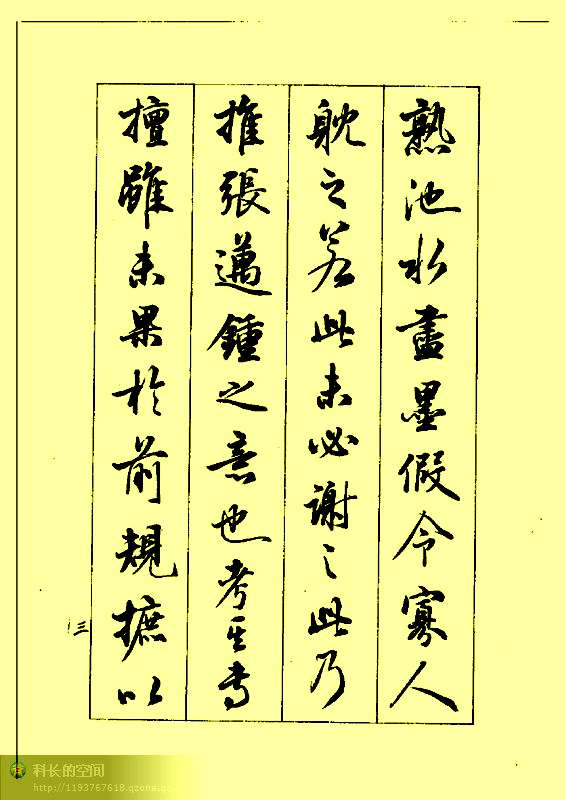 熟池水盡墨假令寡人
躭之若此未必謝之此乃
推張邁鍾之意也考其專
擅雖未果於前規摭以
三
科长的空间
http://1193767618.qzone.qq